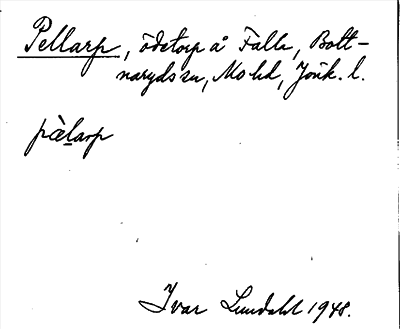 Pellarp, ödetorp å Falla, Bott-
naryds sn, Mo hd, Jönk. l.
pàlarp
Ivar Lundahl 1948.